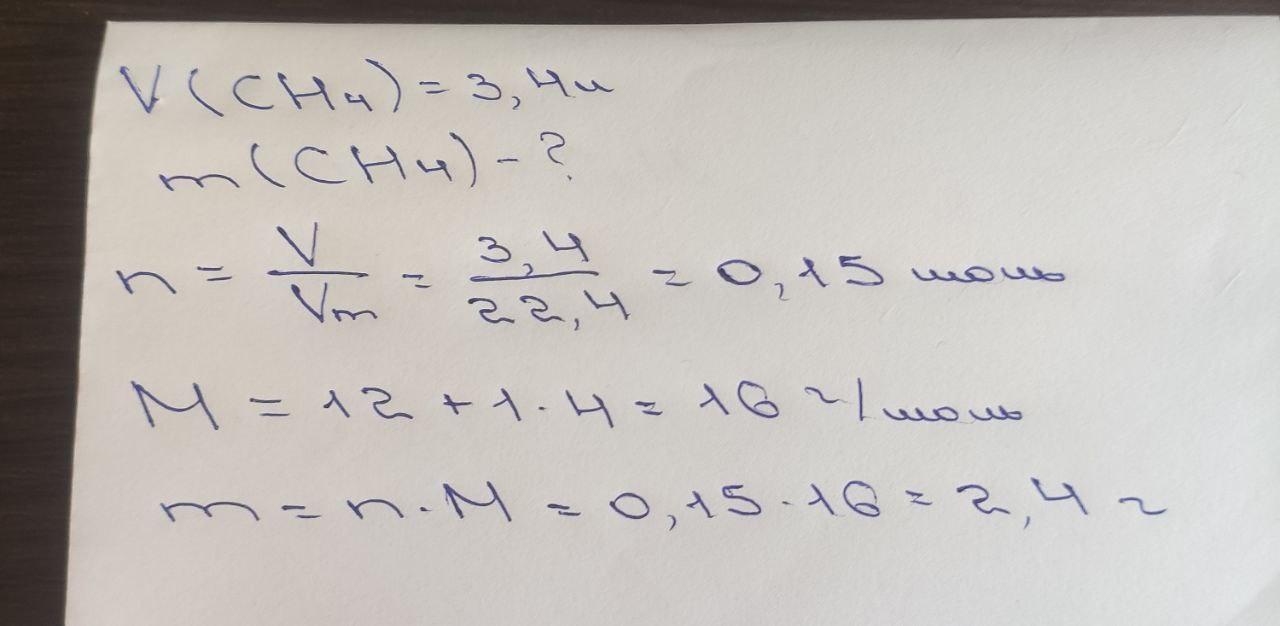 V(CH₄) = 3,4л
m(CH₄) - ?
n = V/Vm = 3,4/22,4 = 0,15 моль
M = 12 + 1 · 4 = 16 г/моль
m = n · M = 0,15 · 16 = 2,4 г